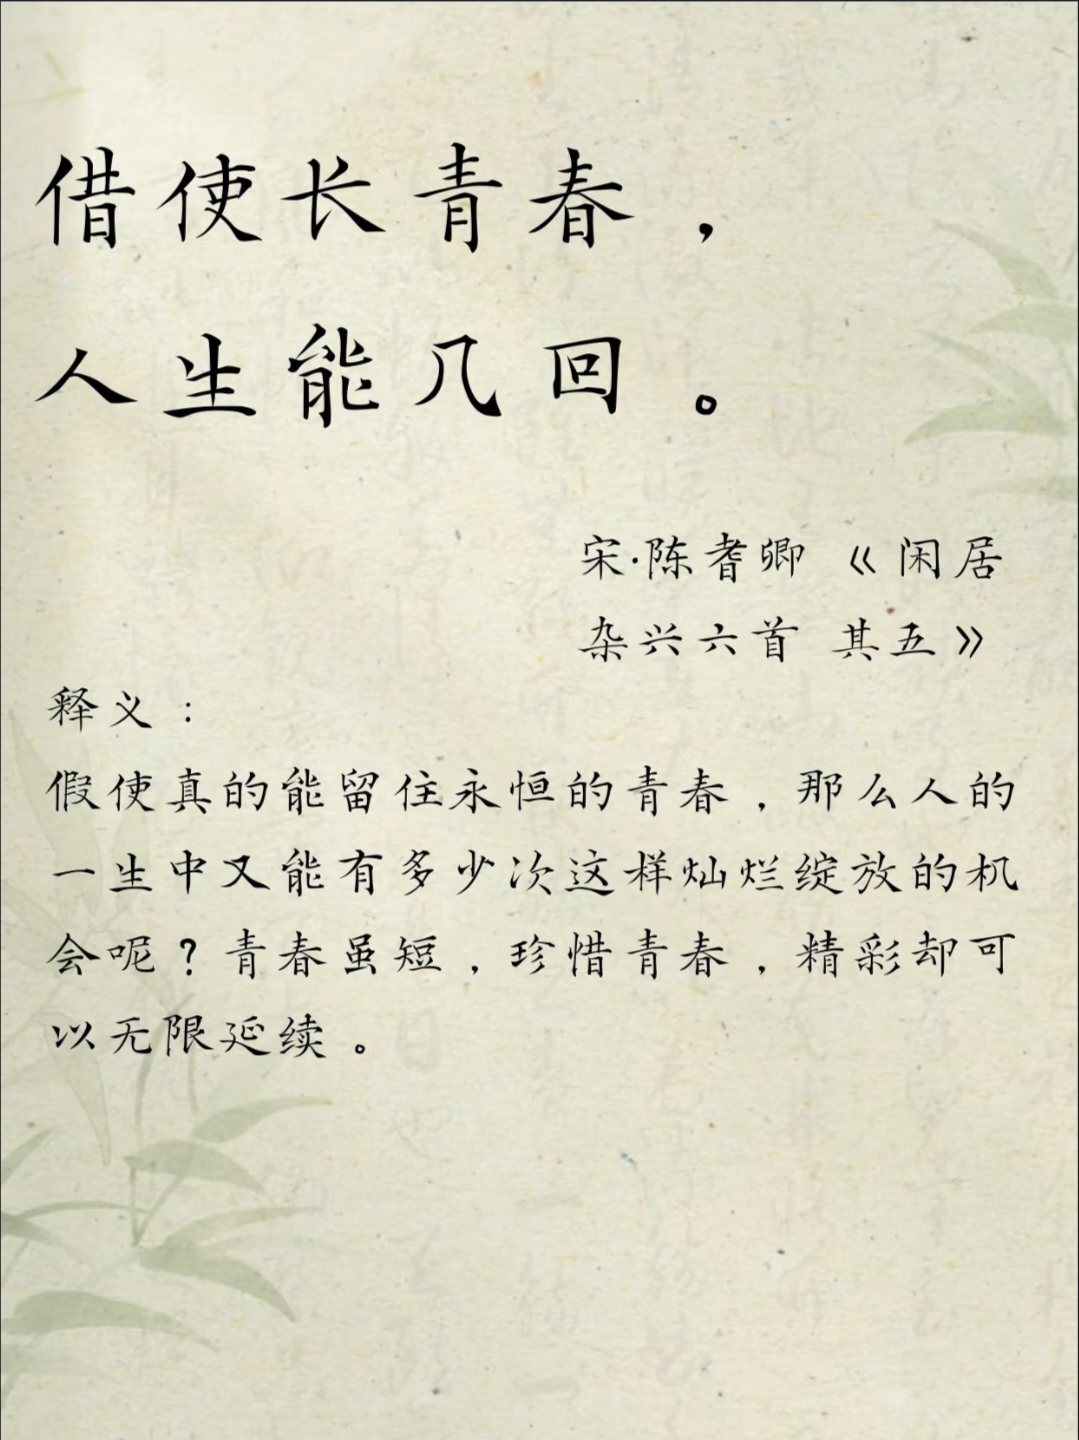 借使长青春，
人生能几回。
宋·陈耆卿 《闲居
杂兴六首 其五》
释义：
假使真的能留住永恒的青春，那么人的
一生中又能有多少次这样灿烂绽放的机
会呢？青春虽短，珍惜青春，精彩却可
以无限延续。